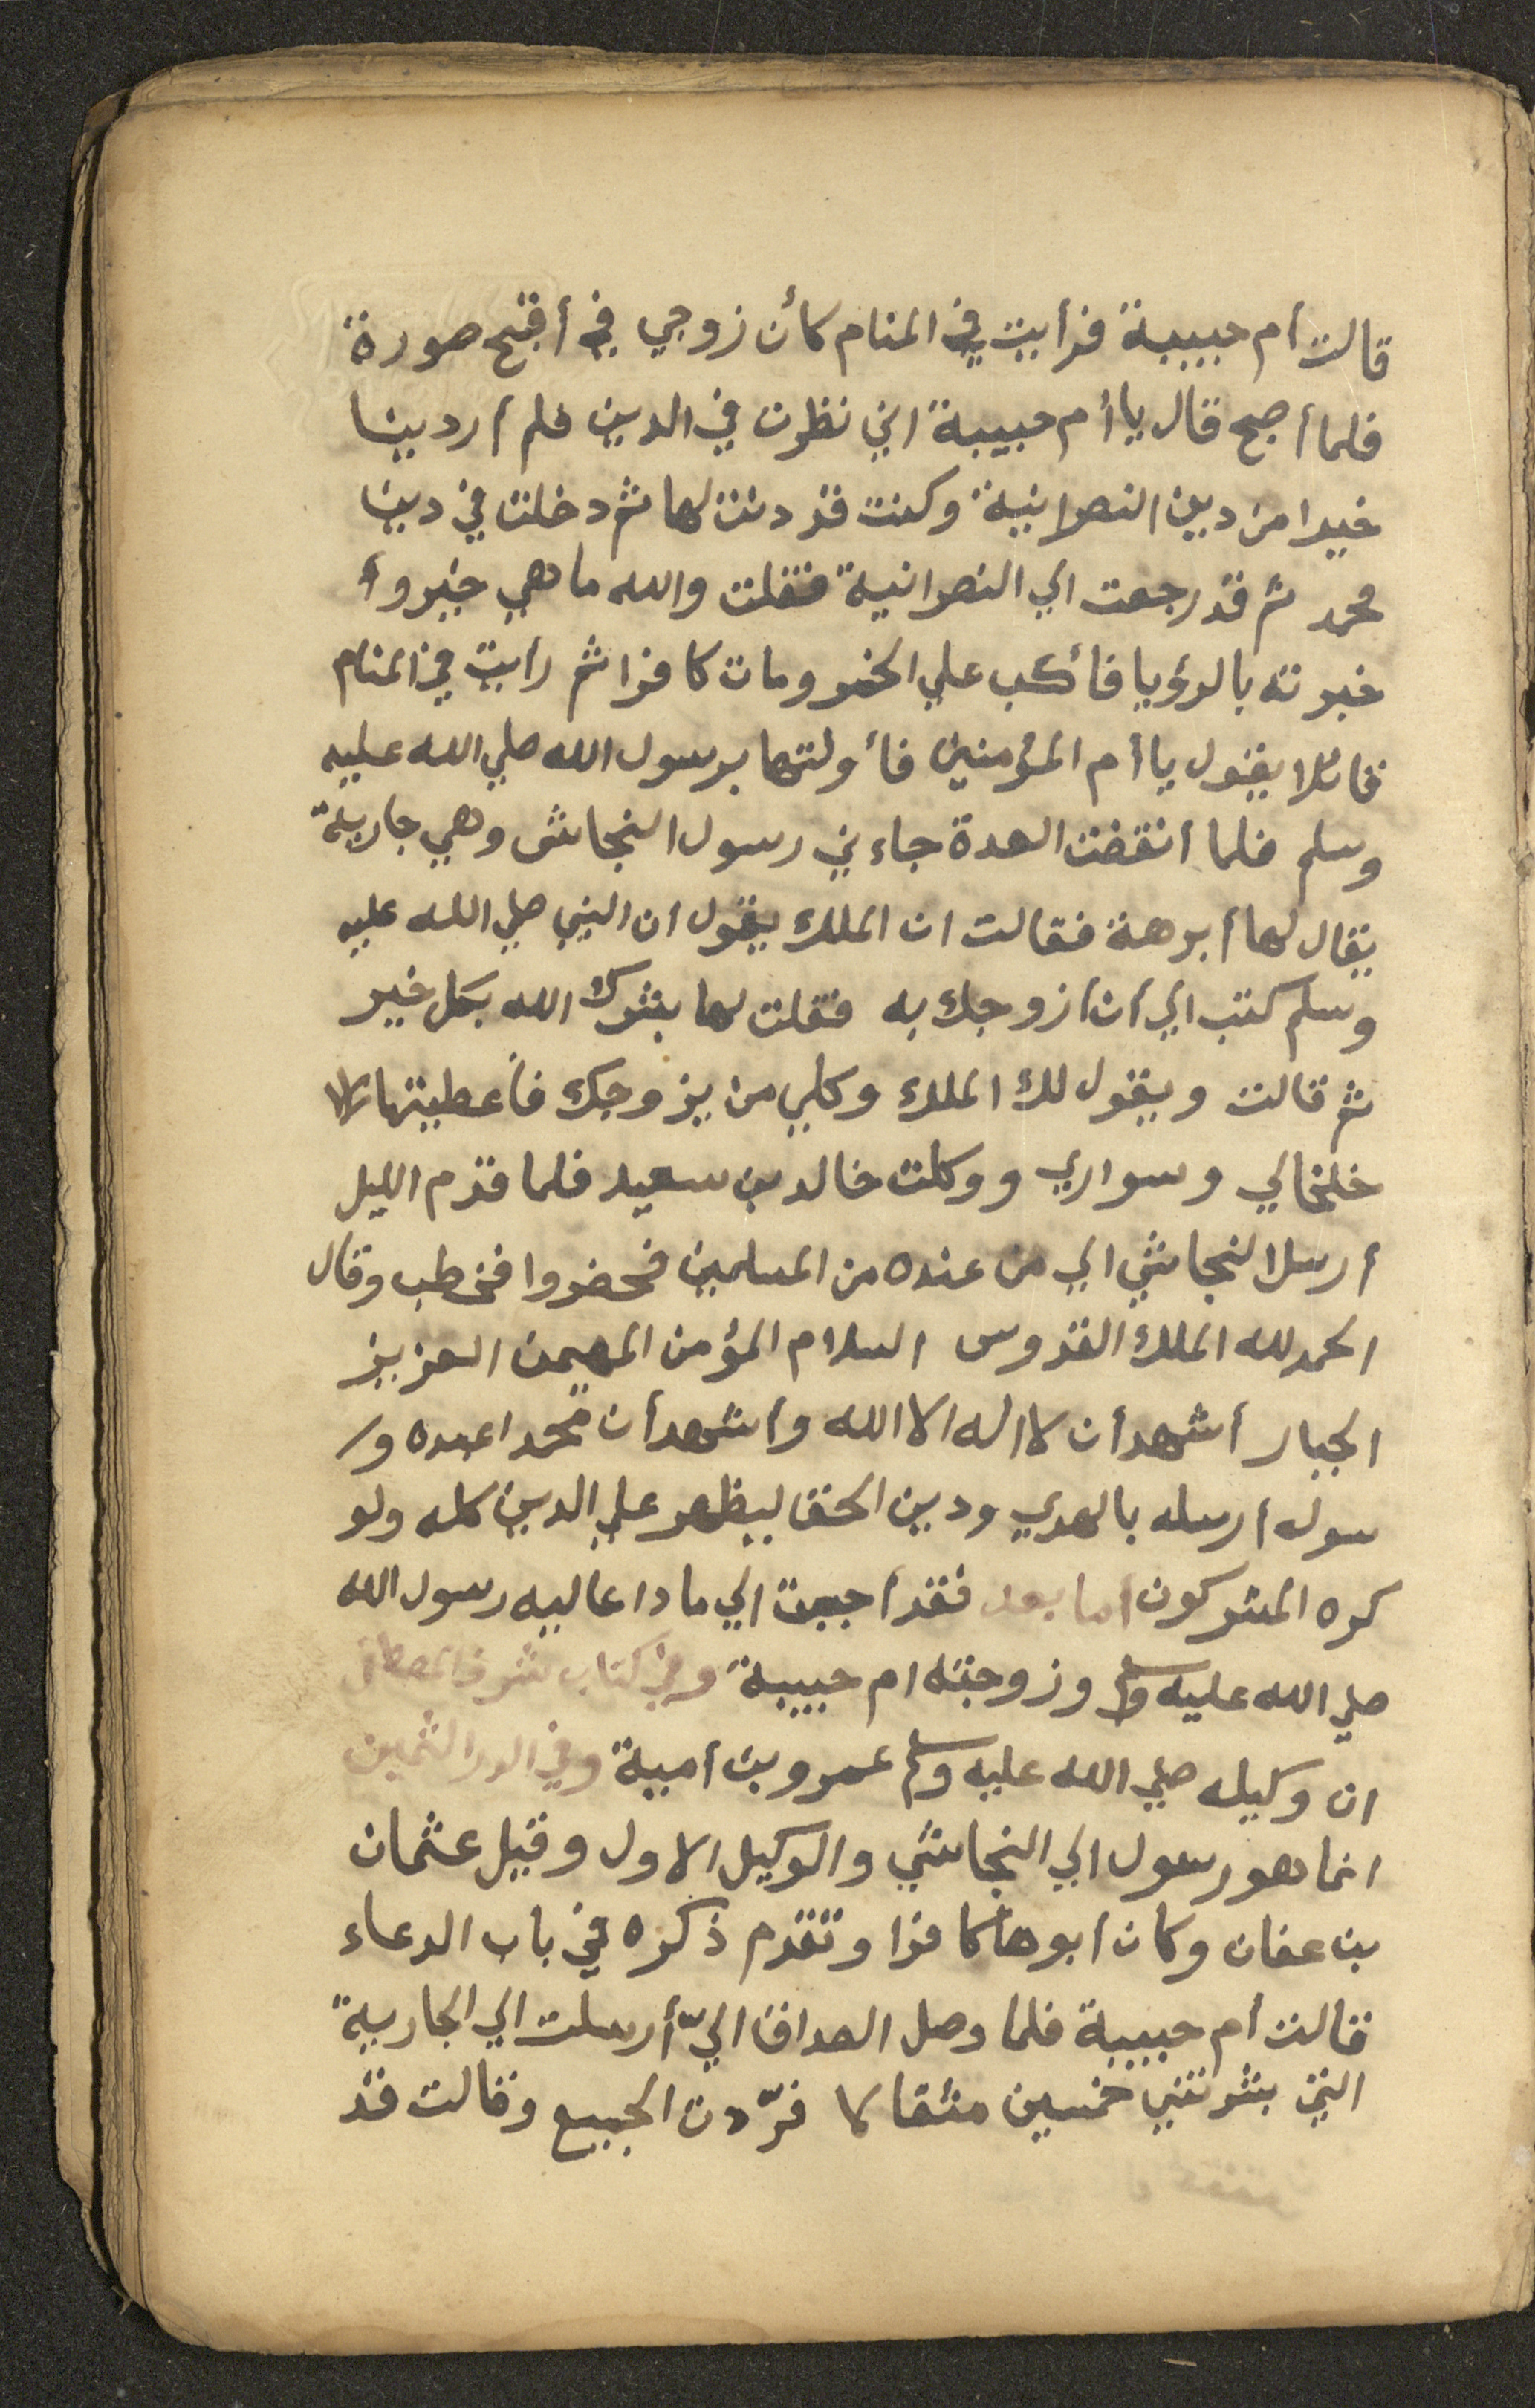 قالت أم حبيبة فرأيت في المنام كأن زوجي في أقبح صورة
فلما أصبح قال يا أم حبيبة اني نظرت في الدين فلم أر دينا
خيرا من دين النصرانية وكنت قد دنت لها ثم دخلت في دين
محمد ثم قد رجعت الي النصرانية فقلت والله ما هي خير وأ
خبرته بالرؤيا فأكب علي الخمر ومات كافرا ثم رايت في المنام
قائلا يقول يا أم المؤمنين فأولتها برسول الله صلي الله عليه
وسلم فلما انقضت العدة جاءني رسول النجاشي وهي جارية
يقال لها أبرهة فقالت ان الملك يقول ان النبي صلي الله عليه
وسلم كتب الي ان أزوجك به فقلت لها بشرك الله بكل خير
ثم قالت ويقول لك الملك وكلي من يزوجك فأعطيتها
خلخالي وسواري ووكلت خالد بن سعيد فلما قدم الليل
أرسل النجاشي الي من عنده من المسلمين فحضروا فخطب وقال
الحمد لله الملك القدوس السلام المؤمن المهيمن العزيز
الجبار أشهد أن لا اله الا الله وأشهد أن محمدا عبده ور
سوله أرسله بالهدي ودين الحق ليظهر علي الدين كله ولو
كره المشركون اما بعد فقد أجبت الي ما دعا اليه رسول الله
صلي الله عليه وسلم وزوجته ام حبيبة وفي كتاب شرف المصطفى
ان وكيله صلي الله عليه وسلم عمرو بن أمية وفي الدر الثمين
انما هو رسول الي النجاشي والوكيل الاول وقيل عثمان
بن عفان وكان ابوها كافرا وتقدم ذكره في باب الدعاء
قالت أم حبيبة فلما وصل الصداق اليّ أرسلت الي الجارية
التي بشرتني خمسين مثقالا فردّت الجميع وقالت قد